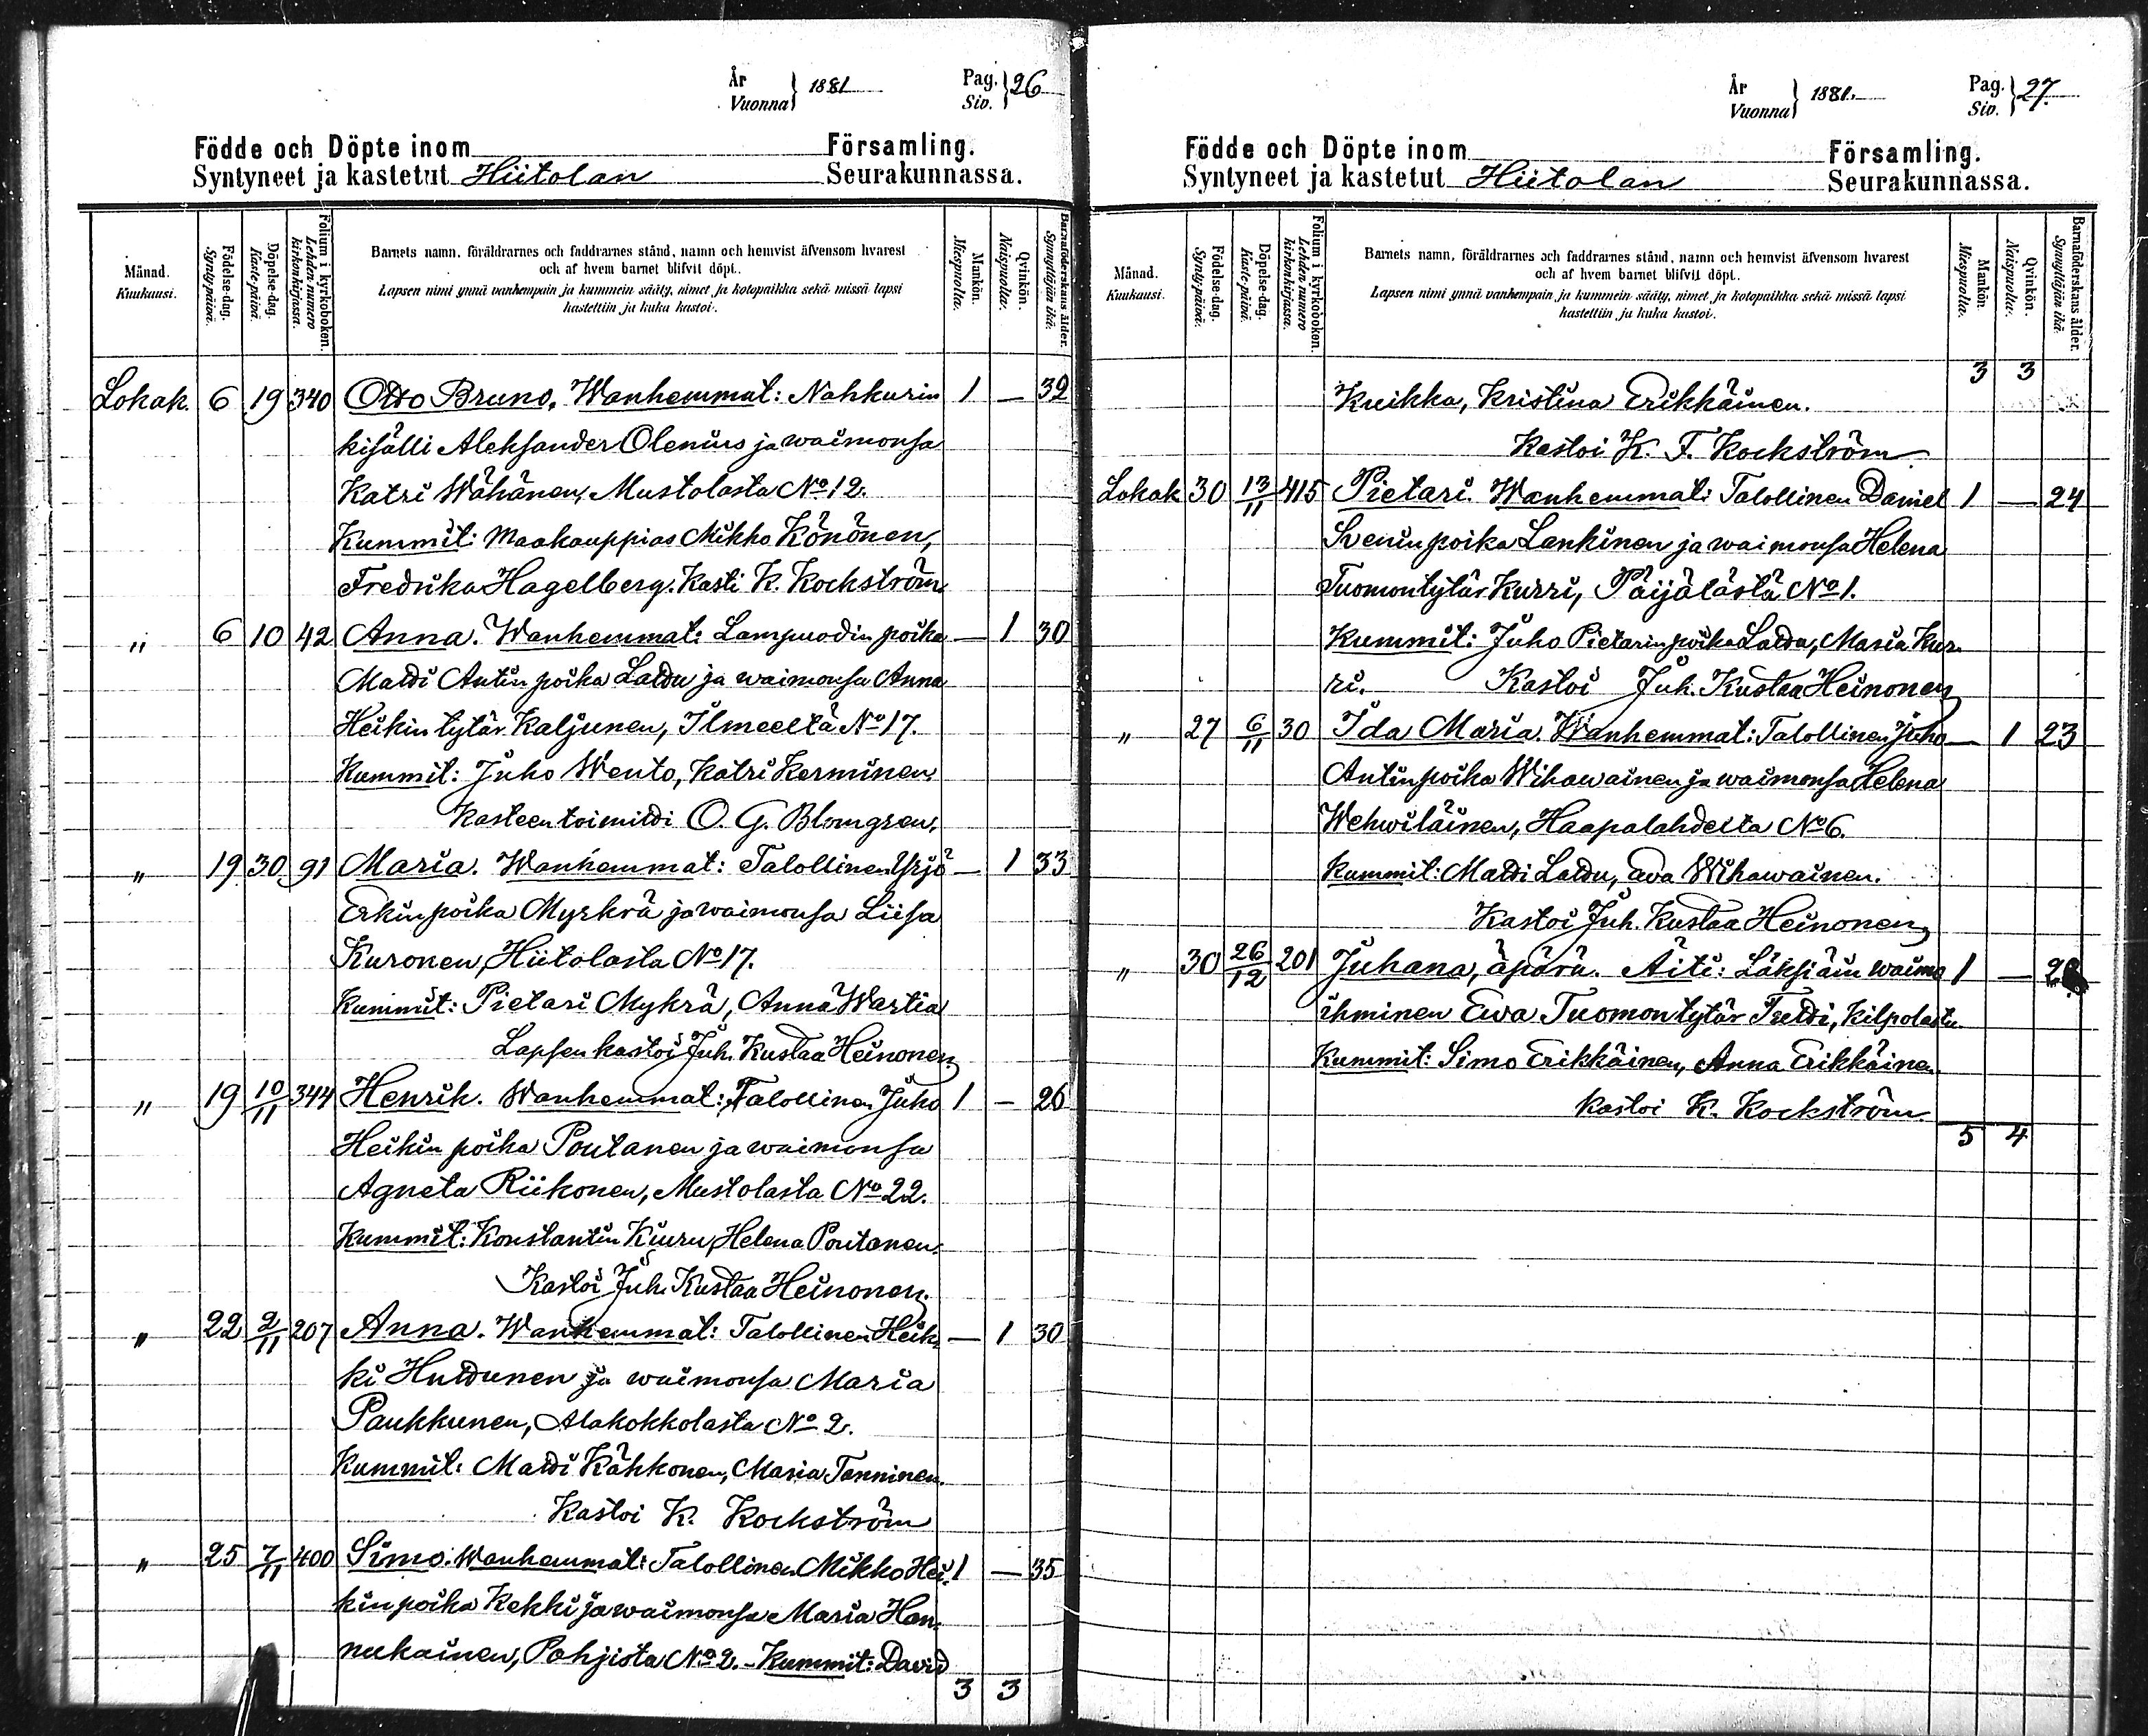 År
Vuonna } 1881
Pag.
Siv. } 26
Födde och Döpte inom Församling.
Syntyneet ja kastetut Hiitolan Seurakunnassa.
Månad.
Kuukausi.
Födelse-dag.
Synty-päivä.
Döpelse-dag.
Kaste-päivä.
Folium i kyrkoboken.
Lehden numero
kirkonkirjassa.
Barnets namn, föräldrarnes och faddrarnes stånd, namn och hemvist äfvensom hvarest
och af hvem barnet blifvit döpt.
Lapsen nimi ynnä vanhempain ja kummein sääty, nimet ja kotopaikka sekä missä lapsi
kastettiin ja kuka kastoi.
Mankön.
Miespuolta.
Qvinkön.
Naispuolta.
Barnaföderskans ålder.
Synnyttäjän ikä.
Lokak. 6 19 340 Otto Bruno. Wanhemmat: Nahkurin 1 — 32
kisälli Aleksander Olenius ja waimonsa
Katri Wähänen, Mustolasta No 12.
Kummit: Maakauppias Mikko Könönen,
Fredrika Hagelberg. Kasti K. Kockström
" 6 10 42 Anna. Wanhemmat: Lampuodin poika — 1 30
Matti Antin poika Lattu ja waimonsa Anna
Heikin tytär Kaljunen, Ilmeeltä No 17.
Kummit: Juho Wento, Katri Kerminen
Kasteen toimitti O. G. Blomgren.
" 19 30 91 Maria. Wanhemmat: Talollinen Yrjö — 1 33
Erkin poika Myrkrä ja waimonsa Liisa
Kuronen, Hiitolasta No 17.
Kummit: Pietari Mykrä, Anna Wartia
Lapsen kastoi Juh. Kustaa Heinonen.
" 19 10/11 344 Henrik. Wanhemmat: Talollinen Juho 1 — 26
Heikin poika Poutanen ja waimonsa
Agneta Riikonen, Mustolasta No 22.
Kummit: Konstantin Kiuru, Helena Poutanen.
Kastoi Juh. Kustaa Heinonen.
" 22 2/11 207 Anna. Wanhemmat: Talollinen Heik- — 1 30
ki Huttunen ja waimonsa Maria
Paukkunen, Alakokkolasta No 2.
Kummit: Matti Kähkönen, Maria Tanninen.
Kastoi K. Kockström
" 25 7/11 400 Simo. Wanhemmat: Talollinen Mikko Hei- 1 — 35
kin poika Kekki ja waimonsa Maria Han-
nukainen, Pohjista No 2. - Kummit: David
3 3
År
Vuonna } 1881.
Pag.
Siv. } 27.
Födde och Döpte inom Församling.
Syntyneet ja kastetut Hiitolan Seurakunnassa.
Månad.
Kuukausi.
Födelse-dag.
Synty-päivä.
Döpelse-dag.
Kaste-päivä.
Folium i kyrkoboken.
Lehden numero
kirkonkirjassa.
Barnets namn, föräldrarnes och faddrarnes stånd, namn och hemvist äfvensom hvarest
och af hvem barnet blifvit döpt.
Lapsen nimi ynnä vanhempain ja kummein sääty, nimet ja kotopaikka sekä missä lapsi
kastettiin ja kuka kastoi.
Mankön.
Miespuolta.
Qvinkön.
Naispuolta.
Barnaföderskans ålder.
Synnyttäjän ikä.
3 3
Kuikka, Kristina Erikkäinen.
Kastoi K. F. Kockström
Lokak 30 13/11 415 Pietari. Wanhemmat: Talollinen Daniel 1 — 24
Svenin poika Lankinen ja waimonsa Helena
Tuomontytär Kurri, Päijälästä No 1.
Kummit: Juho Pietarinpoika Lattu, Maria Kur-
ri. Kastoi Juh. Kustaa Heinonen
" 27 6/11 30 Ida Maria. Wanhemmat: Talollinen Juho — 1 23
Antinpoika Wihawainen ja waimonsa Helena
Wehwiläinen, Haapalahdelta No 6.
Kummit: Matti Lattu, Eva Wihawainen.
Kastoi Juh. Kustaa Heinonen
" 30 26/12 201 Juhana, äpärä. Äiti: Läksiäin waimo 1 —
ihminen Ewa Tuomontytär Tutti, Kilpolasta
Kummit: Simo Erikkäinen, Anna Erikkäinen
Kastoi K. Kockström
5 4